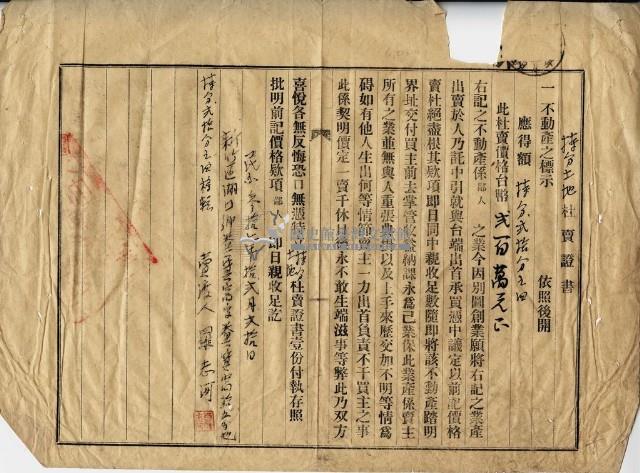 持分土地杜賣證書
一不動產之標示 依照後開
應得額 持分貳拾分之四
此杜賣價格台幣 弍百萬元正
右記之不動產係鄙人之業今因別圖創業願將右記之業產
出賣於人乃託中引就與台端出首承買憑中議定以前記價格
賣杜絕盡根其欵項即日同中親收足數隨即將該不動產踏明
界址交付買主前去掌管收益納課永為己業保此業產係賣主
所有之業並無與人重張典掛以及上手來歷交加不明等情為
碍如有他人生出何等情弊賣主一力出首負責不干買主之事
此係契明價定一賣千休日後永不敢生端滋事等弊此乃双方
喜悅各無反悔恐口無憑特立持分土地杜賣證書壹份付執存照
批明前記價格欵項鄙人即日親收足訖
民國叁拾 年拾弍月弍拾日
新竹區湖口鄉
持分弍拾分之四移轉
賣渡人 羅志河